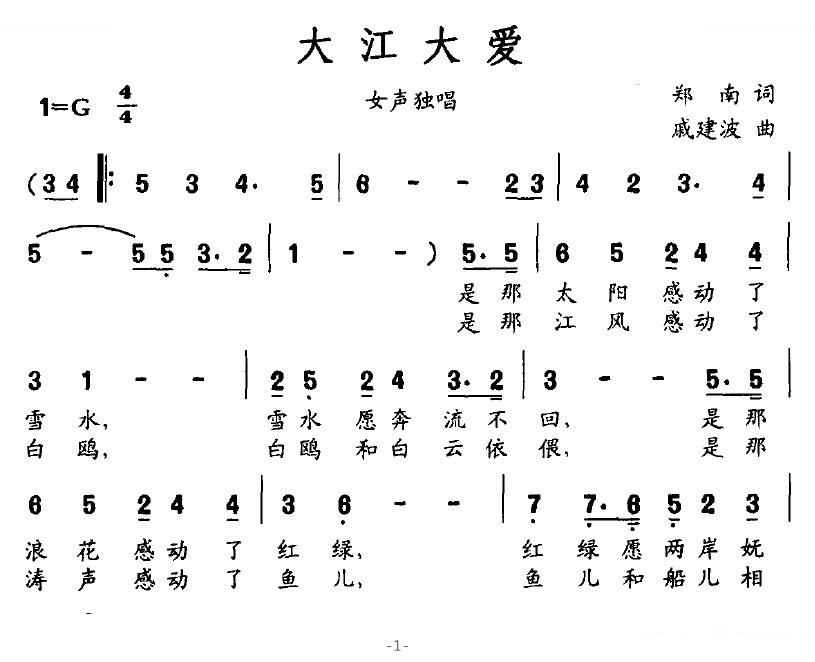 大江大爱
1=G 4/4 女声独唱 郑南词
戚建波曲
(3 4 |: 5 3 4. 5 | 6 - - 2 3 | 4 2 3. 4 |
5 - 5 5 3. 2 | 1 - - ) 5. 5 | 6 5 2 4 4 |
是那太阳感动了
是那江风感动了
3 1 - - | 2 5 2 4 3. 2 | 3 - - 5. 5 |
雪水, 雪水愿奔流不回, 是那
白鸥, 白鸥和白云依偎, 是那
6 5 2 4 4 | 3 6 - - | 7 7. 6 5 2 3 |
浪花感动了红绿, 红绿愿两岸妩
涛声感动了鱼儿, 鱼儿和船儿相
-1-